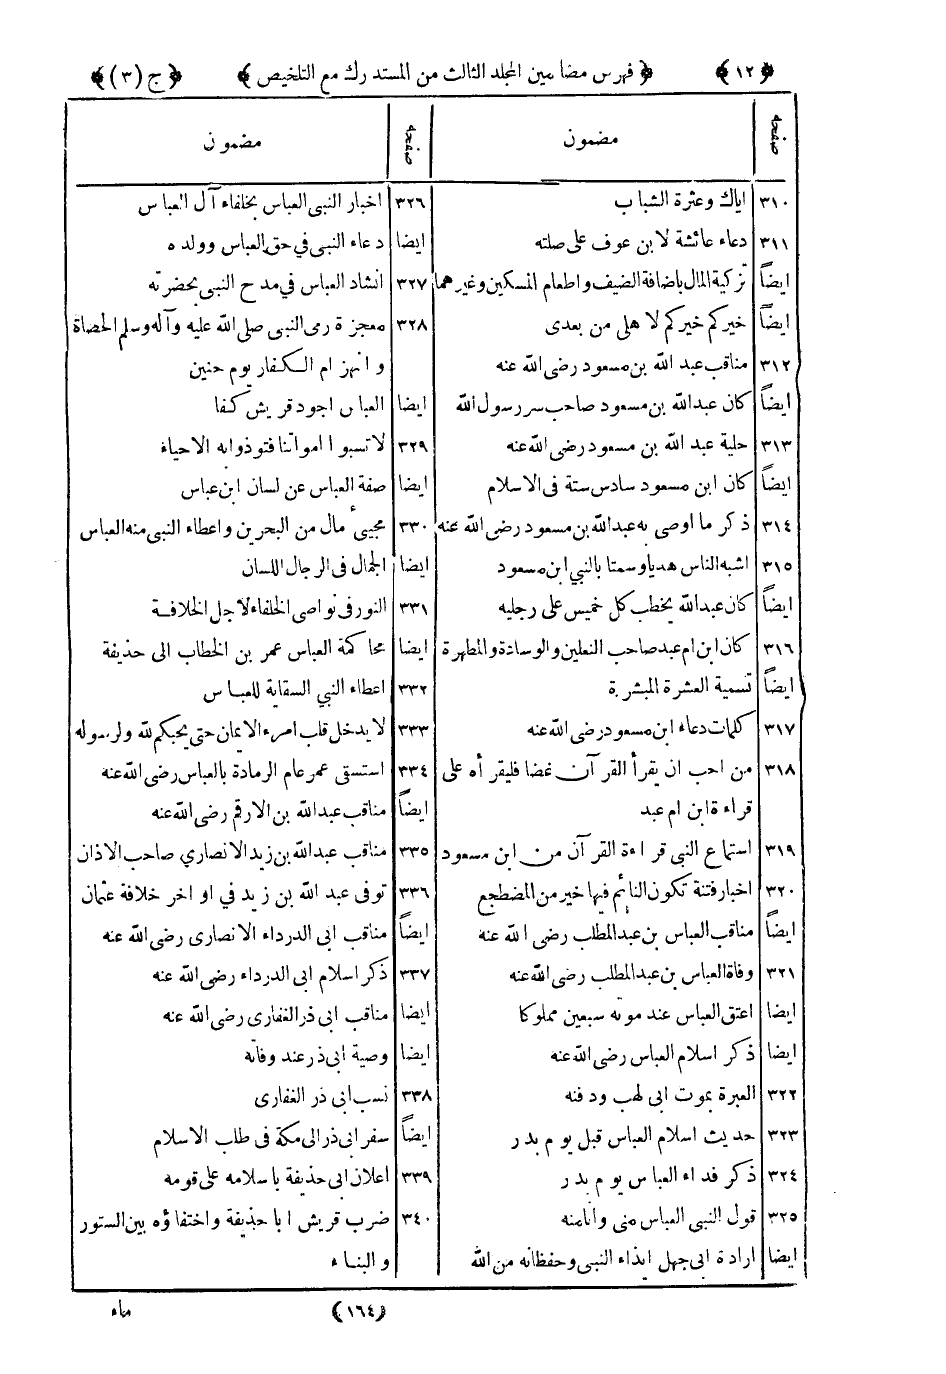 ﴿١٢﴾ ﴿فهرس مضامين المجلد الثالث من المستدرك مع التلخيص﴾ ﴿ج (٣)﴾
صفحه مضمون
٣١٠ اياك وعثرة الشباب
٣١١ دعاء عائشة لابن عوف على صلته
ايضاً تزكية المال باضافة الضيف واطعام المسكين وغيرهما
ايضاً خيركم خيركم لاهلى من بعدى
٣١٢ مناقب عبد الله بن مسعود رضى الله عنه
ايضاً كان عبدالله بن مسعود صاحب سر رسول الله
٣١٣ حلية عبد الله بن مسعود رضى الله عنه
ايضاً كان ابن مسعود سادس ستة فى الاسلام
٣١٤ ذكر ما اوصى به عبدالله بن مسعود رضى الله عنه
٣١٥ اشبه الناس هديا وسمتا بالنبي ابن مسعود
ايضاً كان عبدالله يخطب كل خميس على رجليه
٣١٦ كان ابن ام عبد صاحب النعلين والوسادة والمطهرة
ايضاً تسمية العشرة المبشرة
٣١٧ كلمات دعاء ابن مسعود رضى الله عنه
٣١٨ من احب ان يقرأ القرآن غضا فليقرأه على
قراءة ابن ام عبد
٣١٩ استماع النبى قراءة القرآن من ابن مسعود
٣٢٠ اخبار فتنة تكون النائم فيها خير من المضطجع
ايضاً مناقب العباس بن عبد المطلب رضى الله عنه
٣٢١ وفاة العباس بن عبد المطلب رضى الله عنه
ايضا اعتق العباس عند موته سبعين مملوكا
ايضا ذكر اسلام العباس رضى الله عنه
٣٢٢ العبرة بموت ابى لهب ودفنه
٣٢٣ حديث اسلام العباس قبل يوم بدر
٣٢٤ ذكر فداء العباس يوم بدر
٣٢٥ قول النبى العباس منى وانامنه
ايضا ارادة ابى جهل ايذاء النبى وحفظانه من الله
صفحه مضمون
٣٢٦ اخبار النبى العباس بخلفاء آل العباس
ايضا دعاء النبى فى حق العباس وولده
٣٢٧ انشاد العباس فى مدح النبى بحضرته
٣٢٨ معجزة رمى النبى صلى الله عليه وآله وسلم الحصاة
وانهزام الكفار يوم حنين
ايضا العباس اجود قريش كفا
٣٢٩ لاتسبوا امواتنا فتوذوابه الاحياء
ايضا صفة العباس عن لسان ابن عباس
٣٣٠ مجيئ مال من البحرين واعطاء النبى منه العباس
ايضا الجمال فى الرجال اللسان
٣٣١ النور فى نواصى الخلفاء لاجل الخلافة
ايضا محاكمة العباس عمر بن الخطاب الى حذيفة
٣٣٢ اعطاء النبي السقاية للعباس
٣٣٣ لايدخل قلب امرء الايمان حتى يحبكم لله ولرسوله
٣٣٤ استسقى عمر عام الرمادة بالعباس رضى الله عنه
ايضاً مناقب عبدالله بن الارقم رضى الله عنه
٣٣٥ مناقب عبدالله بن زيد الانصاري صاحب الاذان
٣٣٦ توفى عبد الله بن زيد في اواخر خلافة عثمان
ايضاً مناقب ابى الدرداء الانصارى رضى الله عنه
٣٣٧ ذكر اسلام ابى الدرداء رضى الله عنه
ايضا مناقب ابى ذر الغفارى رضى الله عنه
ايضا وصية ابى ذر عند وفاته
٣٣٨ نسب ابى ذر الغفارى
ايضاً سفر ابى ذر الى مكة فى طلب الاسلام
٣٣٩ اعلان ابى حذيفة باسلامه على قومه
٣٤٠ ضرب قريش اباحذيفة واختفاؤه بين الستور
والبناء
(١٦٤) ماء